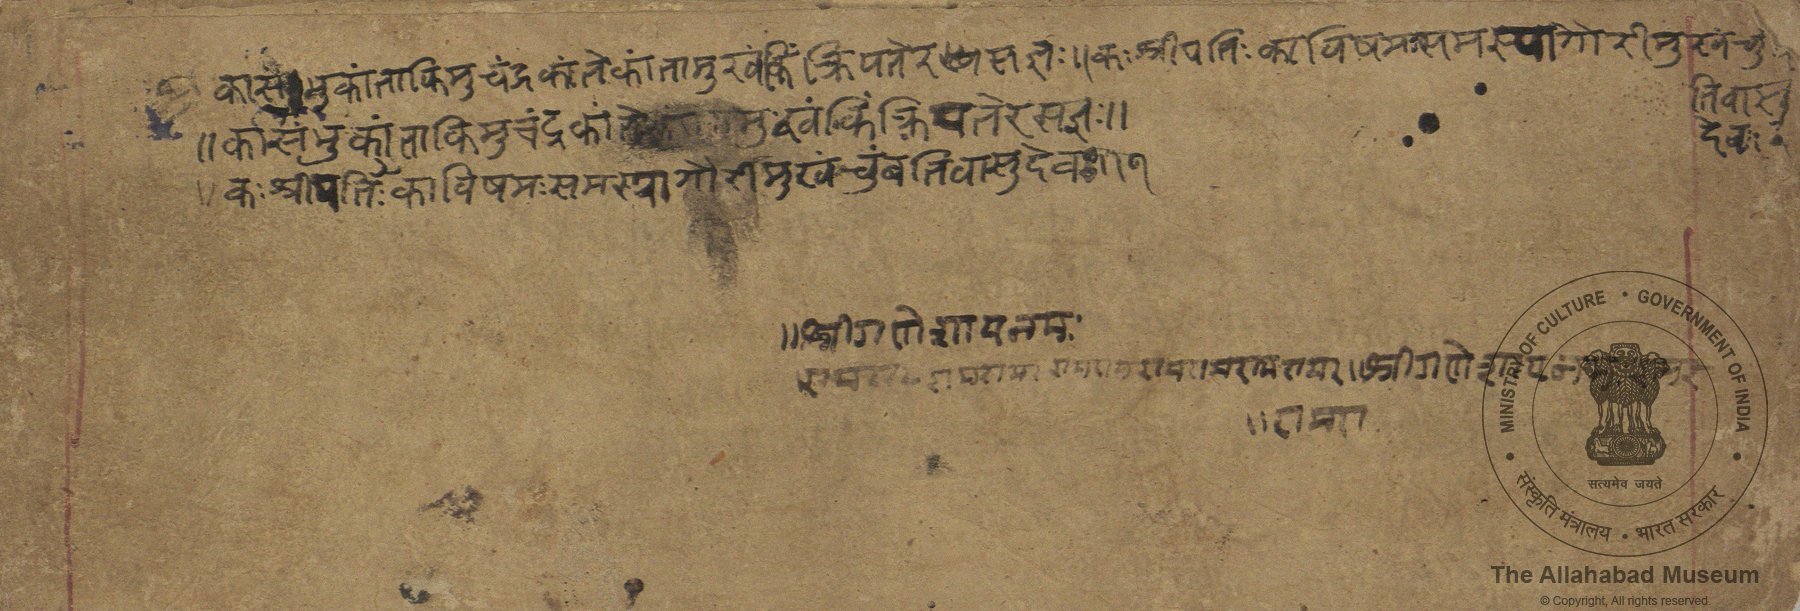 कासंभुकांताकिमुचंद्रकांतेकांतामुखंकिं क्रिपतेर सज्ञः॥ कः श्रीपतिः काविषमसमस्यागोरीमुखंचु
तिवासु
देवः
॥कासंभुकांताकिमुचंद्रकां मुखंकिंक्रिपतेरसज्ञः॥
॥कः श्रीपतिः काविषमः समस्यागौरीमुखंचुंबतिवासुदेवः॥१
॥श्रीगणेशायनमः
रामराम रामराम रामराम ॥श्रीगणेशाय
॥राम
MINISTRY OF CULTURE • GOVERNMENT OF INDIA
सत्यमेव जयते
संस्कृति मंत्रालय • भारत सरकार
The Allahabad Museum
© Copyright, All rights reserved